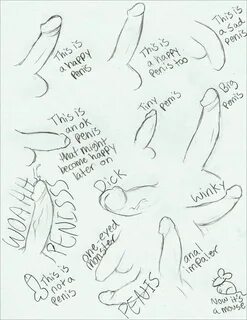 This is
a happy
penis
This is
a happy
penis too
This is
a sad
penis
This is
an ok
penis
that might
become happy
later on
Tiny penis
Big
penis
WOAHHH
PENISSS
Dick
Winky
This is
not a
penis
one eyed
monster
PENIS
anal
impaler
Now it's
a mouse